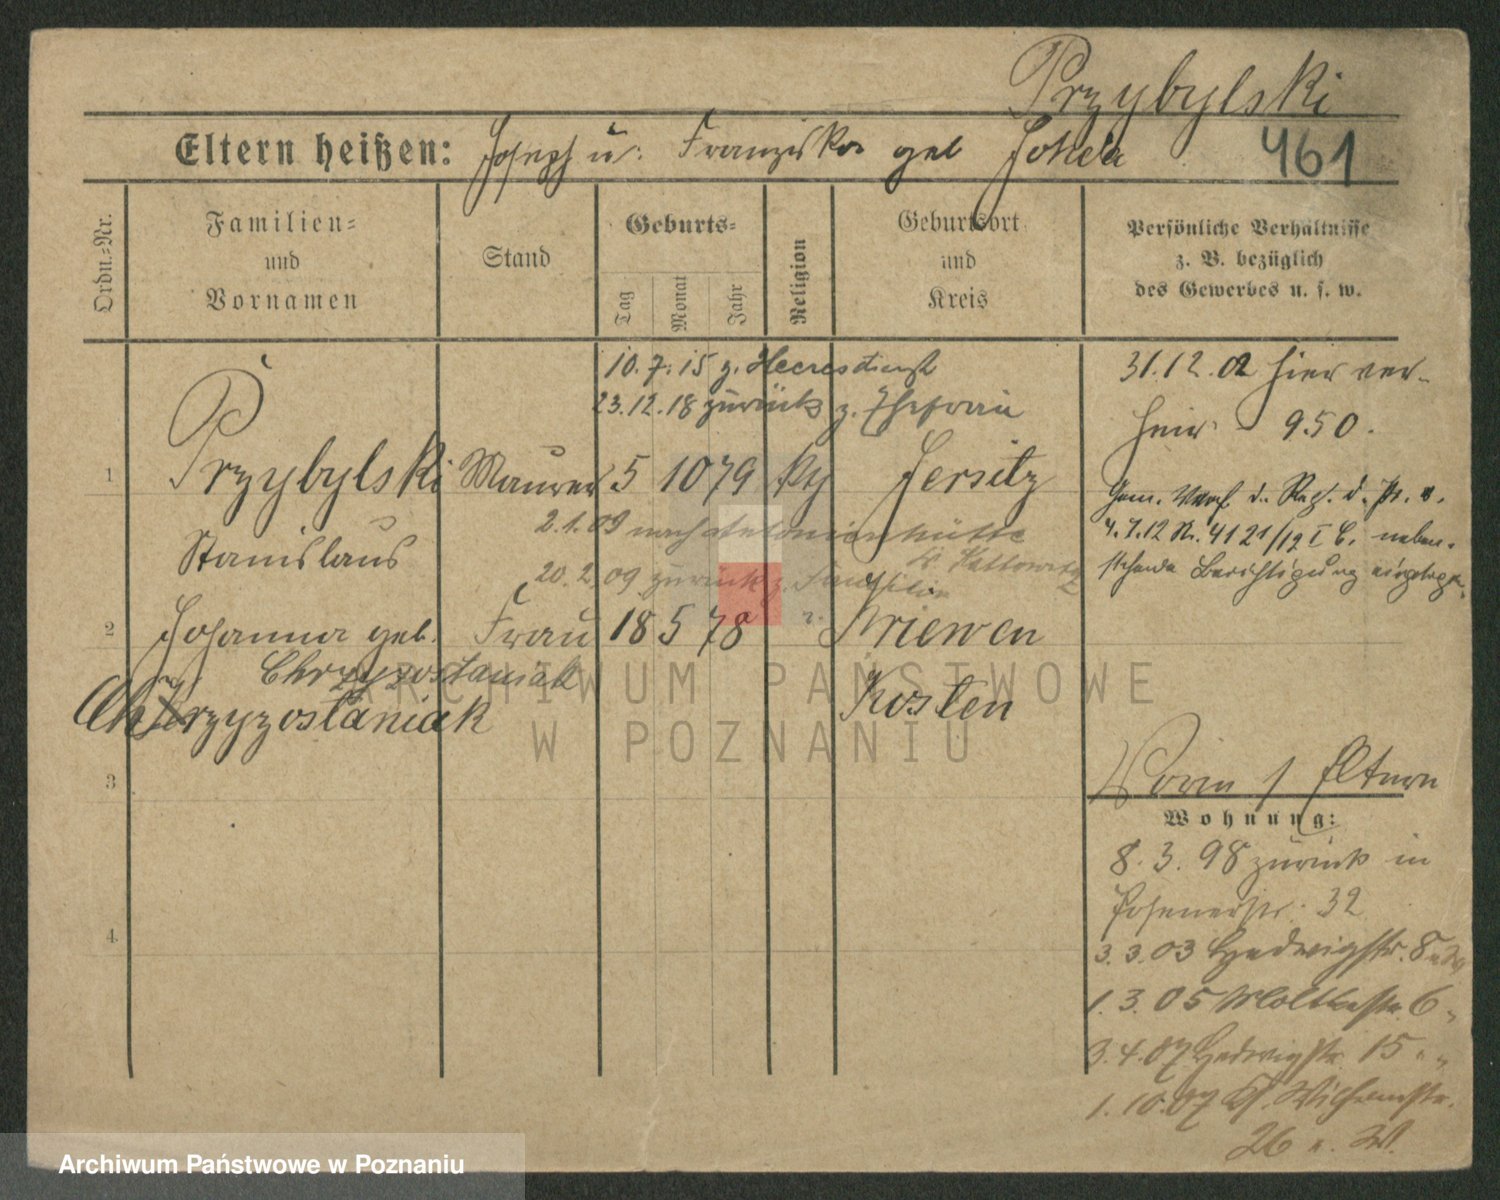 Przybylski
Eltern heißen: Joseph u. Franziska geb
461
Ordn.-Nr.
Familien-
und
Vornamen
Stand
Geburts-
Tag
Monat
Jahr
Religion
Geburtsort
und
Kreis
Persönliche Verhältnisse
z. B. bezüglich
des Gewerbes u. s. w.
10.7.15 z. Heeresdienst
23.12.18 zurück z. Ehefrau
1 Przybylski Maurer 5 10 79 Jersitz
Stanislaus
2.1.09 nach Antonienhütte
Kr. Kattowitz
20.2.09 zurück z. Familie
2 Johanna geb. Frau 18 5 78 Kriewen
Chrzyzostaniak
Chrzyzostaniak
Kosten
3
4
31.12.02 hier ver-
heir. 950.
Gem. Verf. d. Reg. d. Pr. v.
4.7.12 Nr. 4121/12 I C. neben-
stehende Berichtigung eingetragen.
Vorm / Eltern
Wohnung:
8.3.98 zurück in
Posenerstr. 32
3.3.03 Hedwigstr. 8
1.3.05 Moltkestr. 6
3.4.07 Hedwigstr. 15 " "
1.10.07 Ks. Wilhelmstr.
26 a. W.
ARCHIWUM PAŃSTWOWE
W POZNANIU
Archiwum Państwowe w Poznaniu